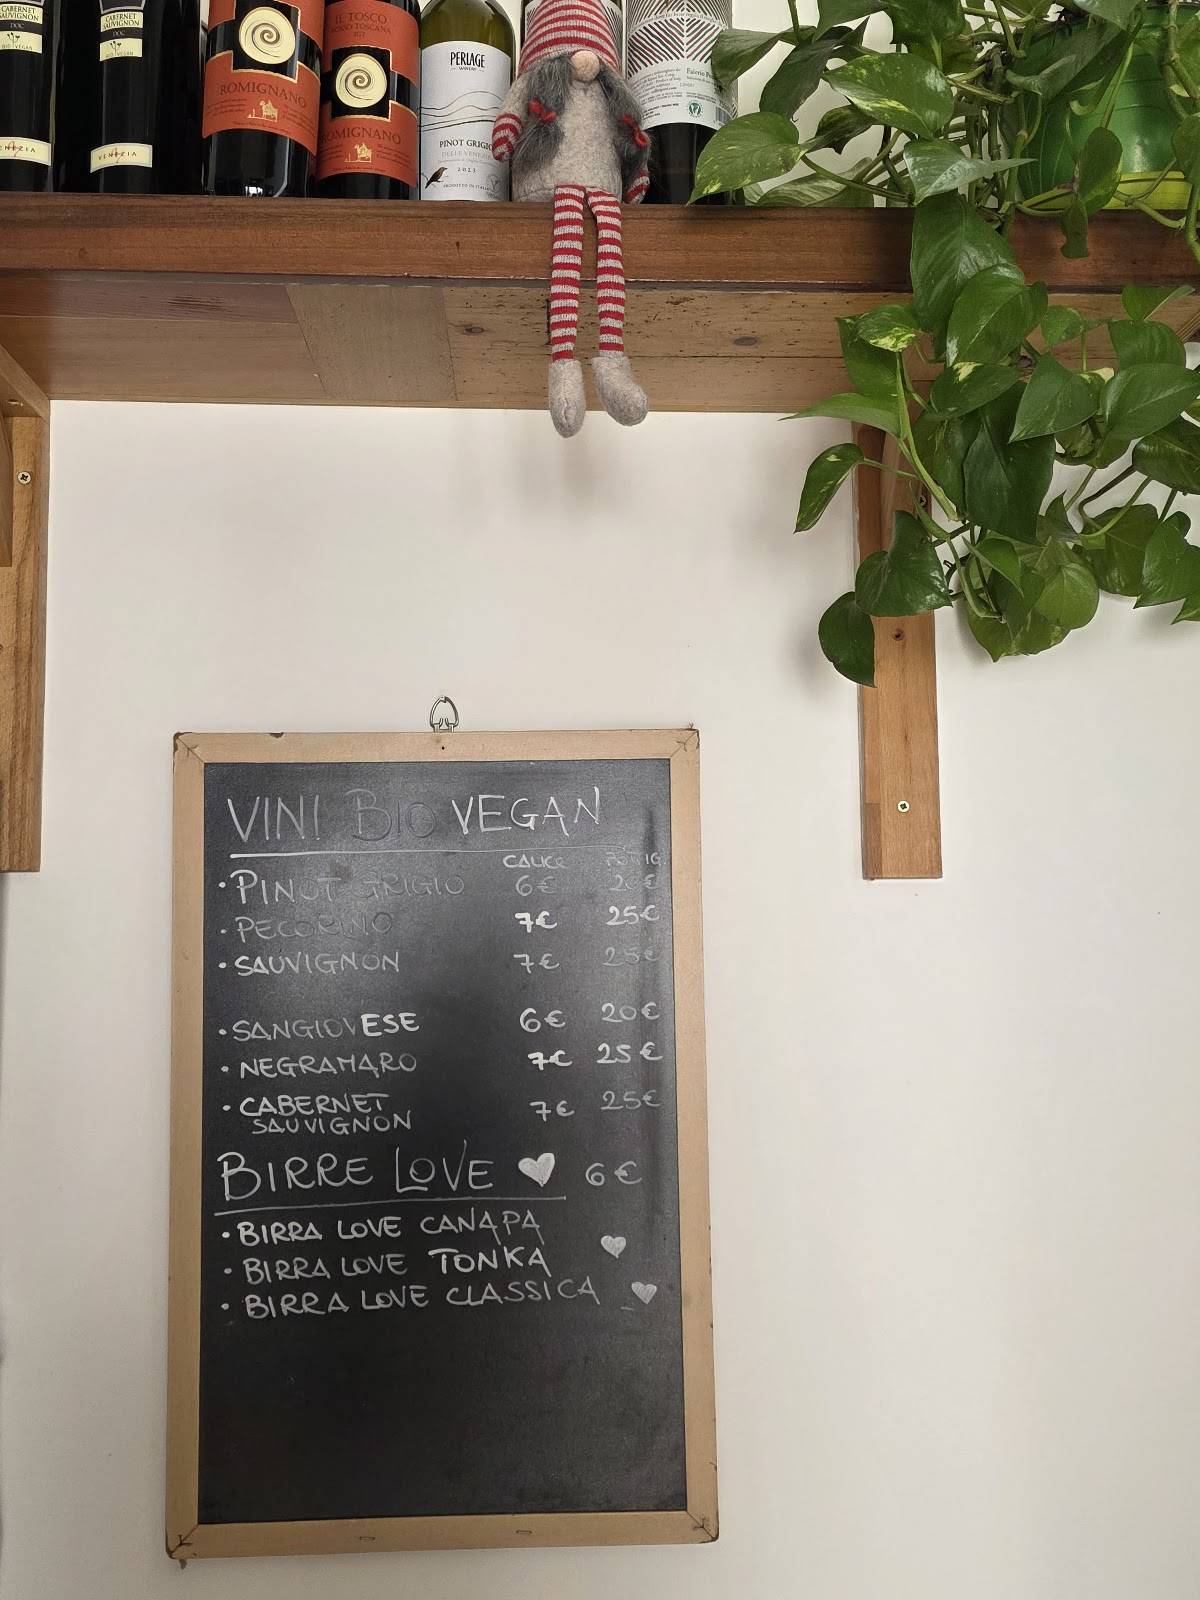 CABERNET
SAUVIGNON
DOC
BIO VEGAN
VENEZIA
CABERNET
SAUVIGNON
DOC
BIO VEGAN
VENEZIA
ROMIGNANO
IL TOSCO
ROSSO TOSCANA
IGT
ROMIGNANO
PERLAGE
WINERY
PINOT GRIGIO
DELLE VENEZIE
2023
Falerio
VINI BIO VEGAN
CALICE
• PINOT GRIGIO 6€ 20€
• PECORINO 7€ 25€
• SAUVIGNON 7€ 25€
• SANGIOVESE 6€ 20€
• NEGRAMARO 7€ 25€
• CABERNET 7€ 25€
SAUVIGNON
BIRRE LOVE 6€
• BIRRA LOVE CANAPA
• BIRRA LOVE TONKA
• BIRRA LOVE CLASSICA